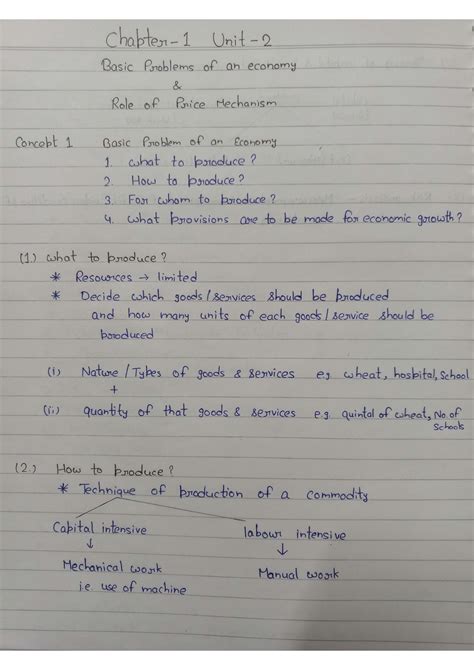 Chapter-1 Unit-2
Basic Problems of an economy
&
Role of Price Mechanism
Concept 1 Basic Problem of an Economy
1. What to produce?
2. How to produce?
3. For whom to produce?
4. What provisions are to be made for economic growth?
(1.) What to produce?
* Resources → limited
* Decide which goods/services should be produced
and how many units of each goods/service should be
produced
(i) Nature/Types of goods & services eg wheat, hospital, School
+
(ii) quantity of that goods & services e.g. quintal of wheat, No. of
Schools
(2.) How to produce?
* Technique of production of a commodity
Capital intensive labour intensive
↓ ↓
Mechanical work Manual work
i.e use of machine